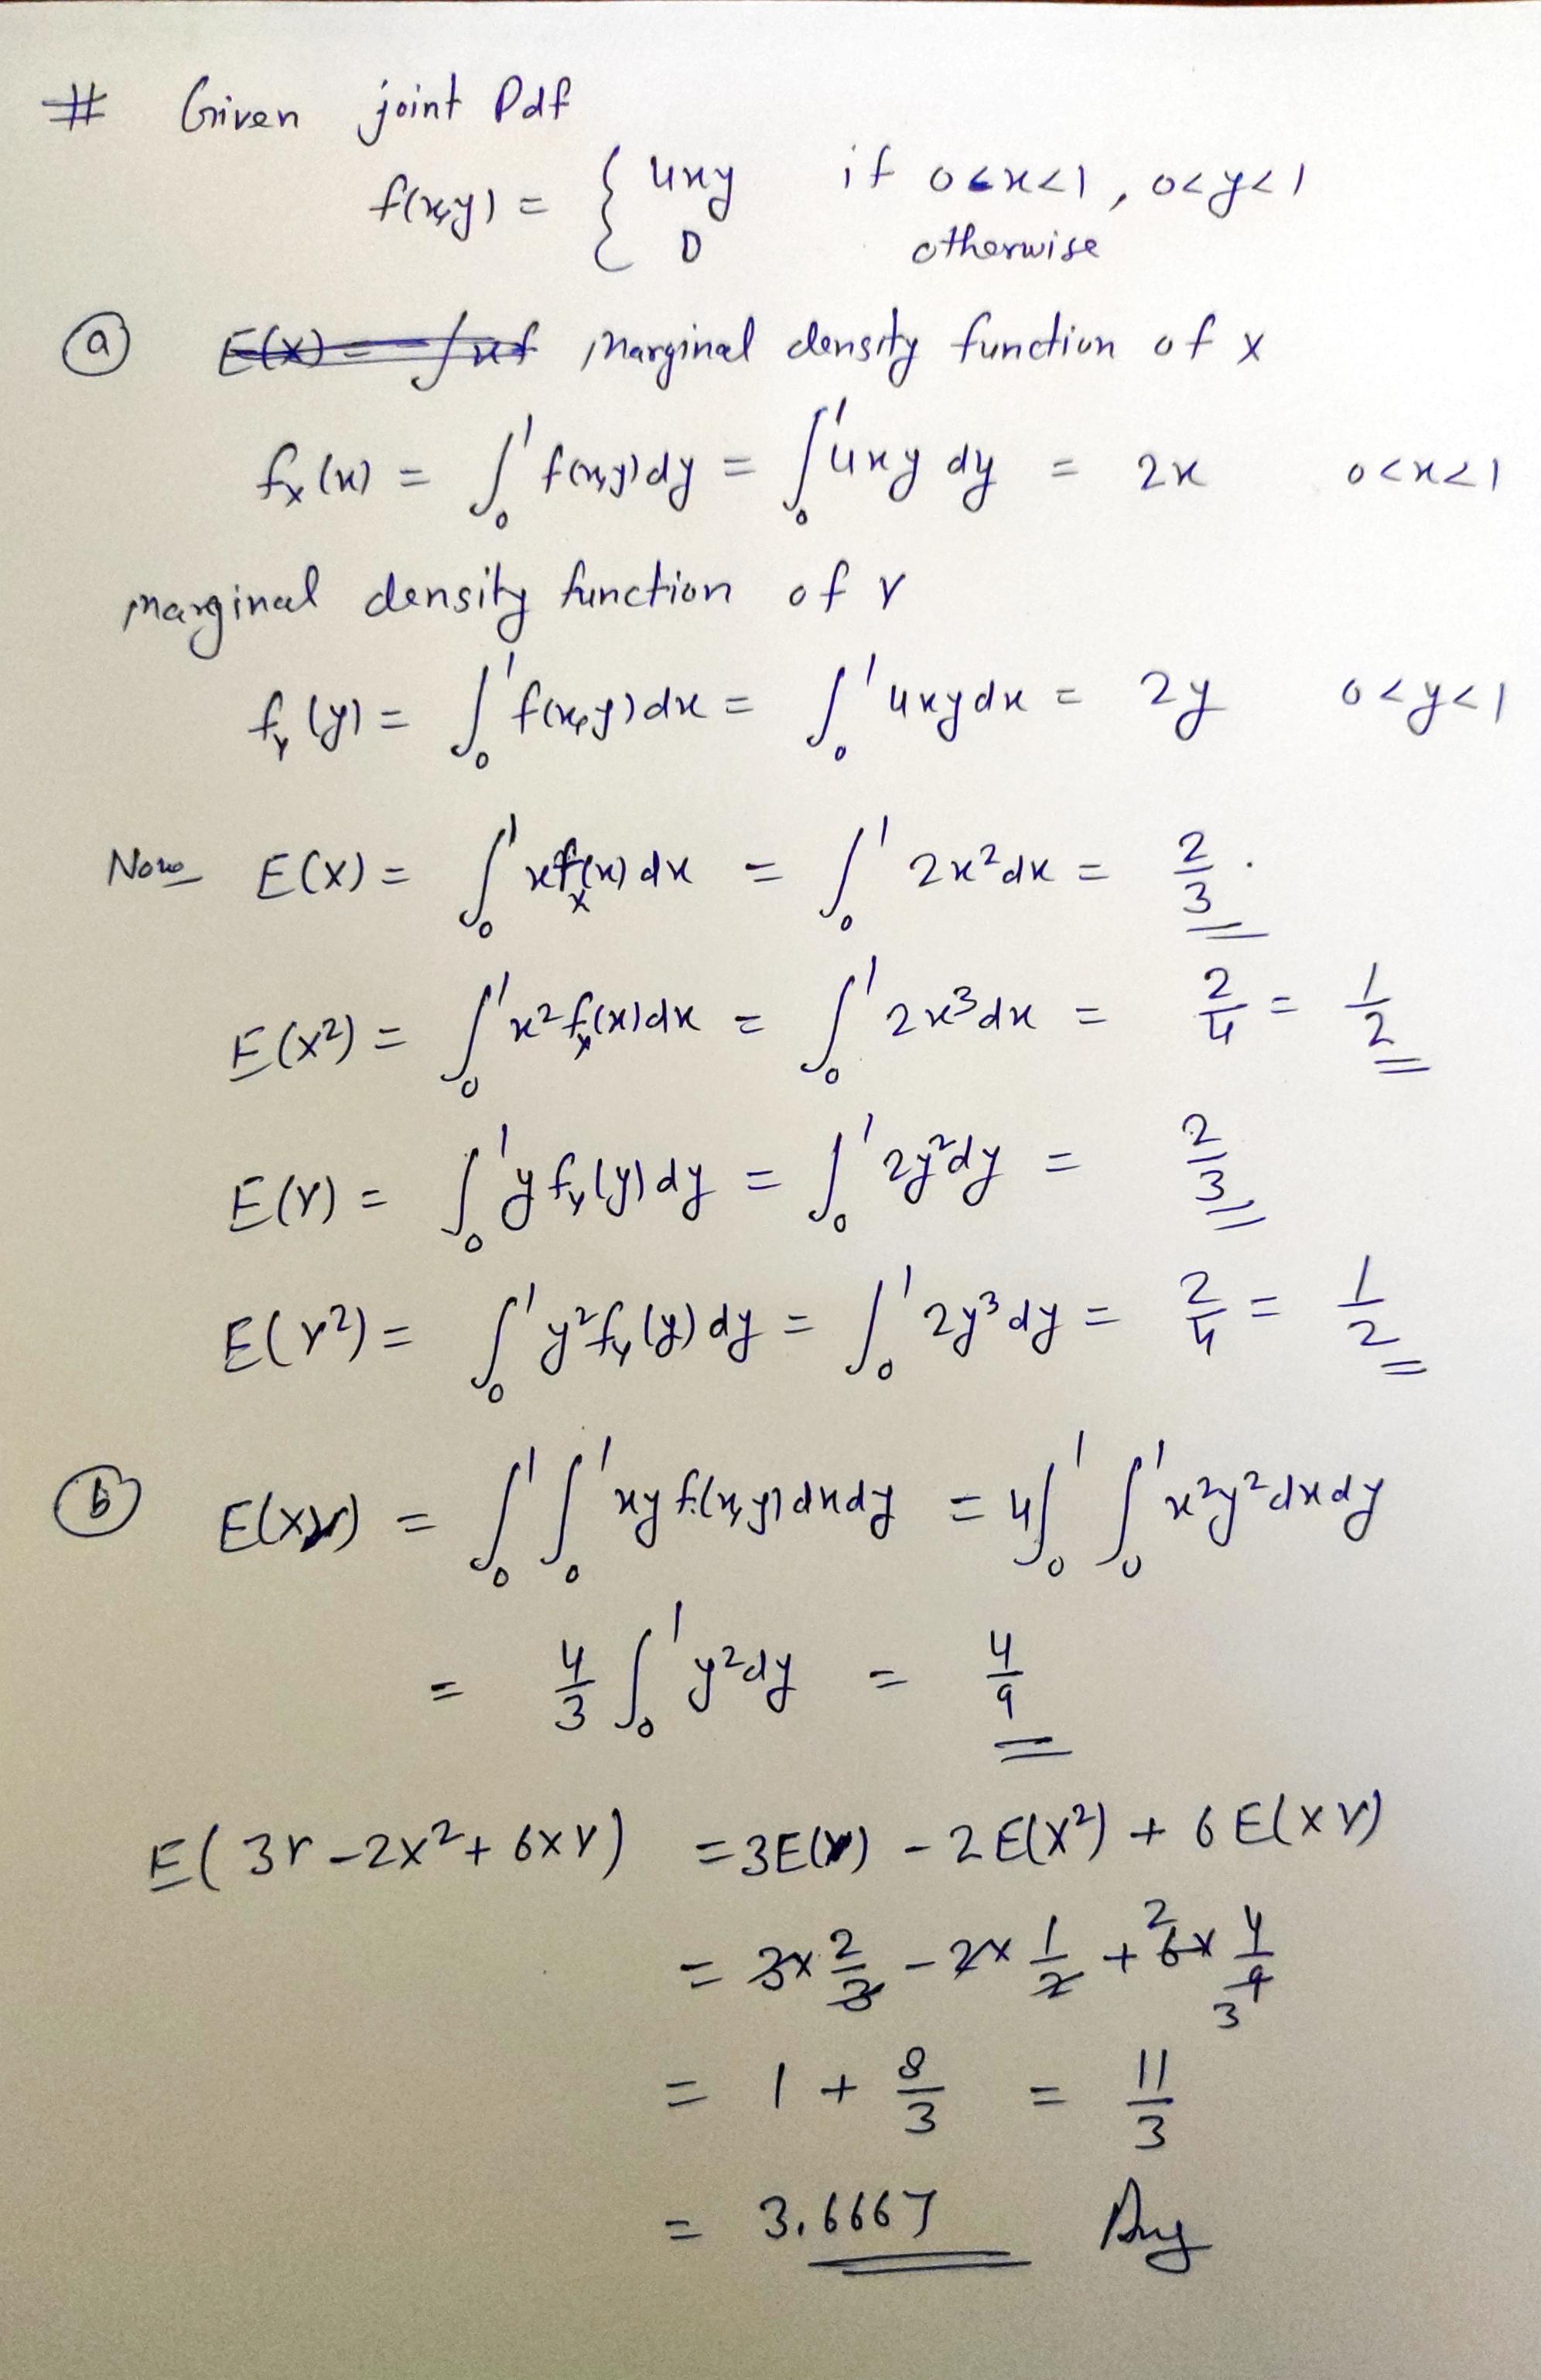 # Given joint Pdf
f(x,y) = { 4xy if 0<x<1, 0<y<1
0 otherwise
(a) marginal density function of x
f_X(x) = ∫₀¹ f(x,y)dy = ∫₀¹ 4xy dy = 2x 0<x<1
marginal density function of Y
f_Y(y) = ∫₀¹ f(x,y)dx = ∫₀¹ 4xy dx = 2y 0<y<1
Now E(X) = ∫₀¹ x f_X(x) dx = ∫₀¹ 2x² dx = 2/3.
E(X²) = ∫₀¹ x² f_X(x)dx = ∫₀¹ 2x³ dx = 2/4 = 1/2
E(Y) = ∫₀¹ y f_Y(y) dy = ∫₀¹ 2y² dy = 2/3
E(Y²) = ∫₀¹ y² f_Y(y) dy = ∫₀¹ 2y³ dy = 2/4 = 1/2
(b) E(XY) = ∫₀¹ ∫₀¹ xy f(x,y) dx dy = 4∫₀¹ ∫₀¹ x²y² dx dy
= 4/3 ∫₀¹ y² dy = 4/9
E(3Y-2X²+6XY) = 3E(Y) - 2E(X²) + 6E(XY)
= 3×2/3 - 2×1/2 + 6×4/9
= 1 + 8/3 = 11/3
= 3.6667 Ans